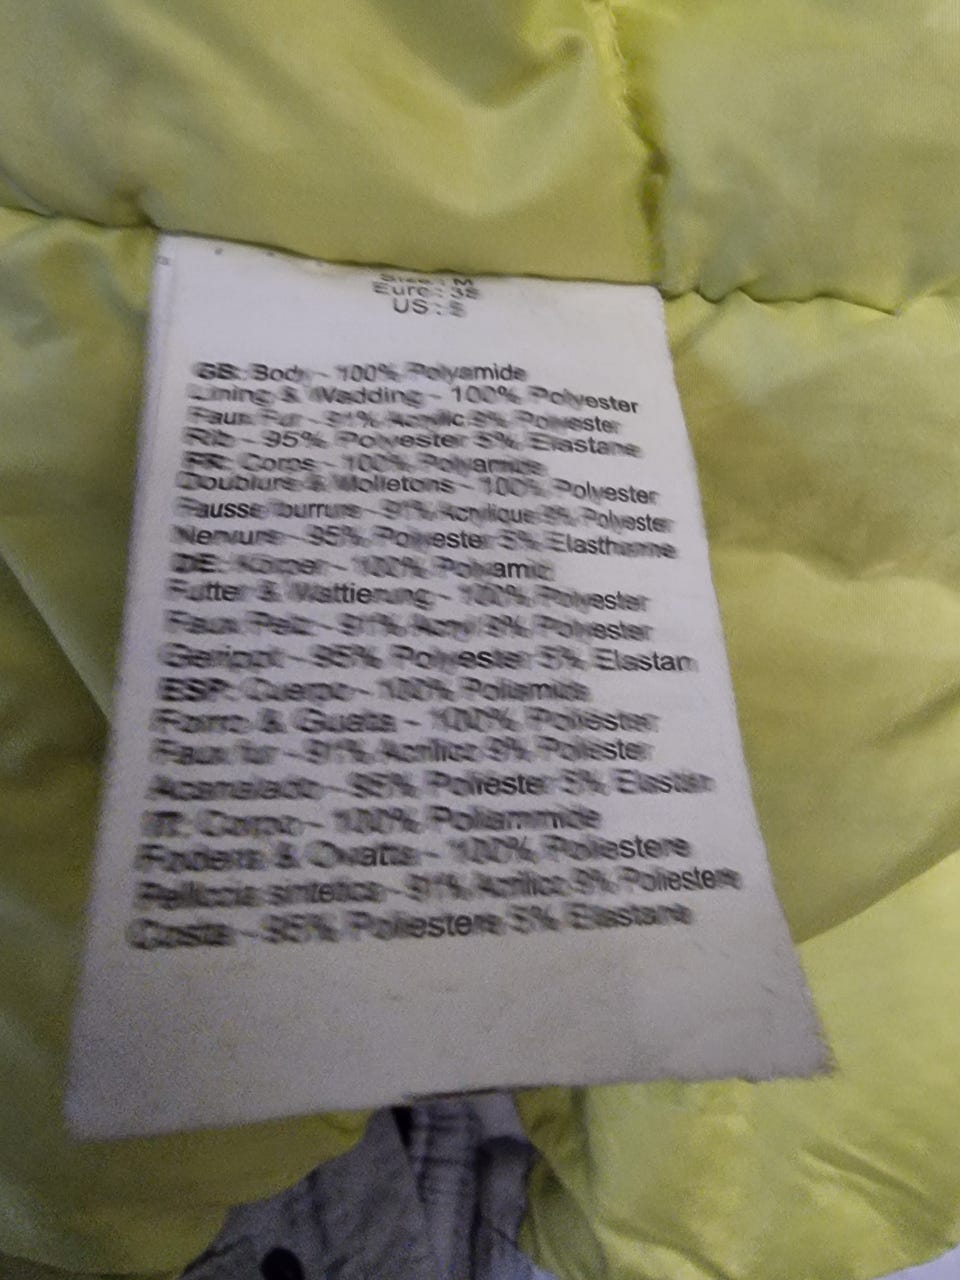 Size : M
Euro : 38
US : S
GB: Body - 100% Polyamide
Lining & Wadding - 100% Polyester
Faux Fur - 91% Acrylic 9% Polyester
Rib - 95% Polyester 5% Elastane
FR: Corps - 100% Polyamide
Doublure & Molletons - 100% Polyester
Fausse fourrure - 91% Acrylique 9% Polyester
Nervure - 95% Polyester 5% Elasthanne
DE: Körper - 100% Polyamid
Futter & Wattierung - 100% Polyester
Faux Pelz - 91% Acryl 9% Polyester
Gerippt - 95% Polyester 5% Elastan
ESP: Cuerpo - 100% Poliamida
Forro & Guata - 100% Poliester
Faux fur - 91% Acrilico 9% Poliester
Acanalado - 95% Poliester 5% Elastan
IT: Corpo - 100% Poliammide
Fodera & Ovatta - 100% Poliestere
Pelliccia sintetica - 91% Acrilico 9% Poliestere
Costa - 95% Poliestere 5% Elastane